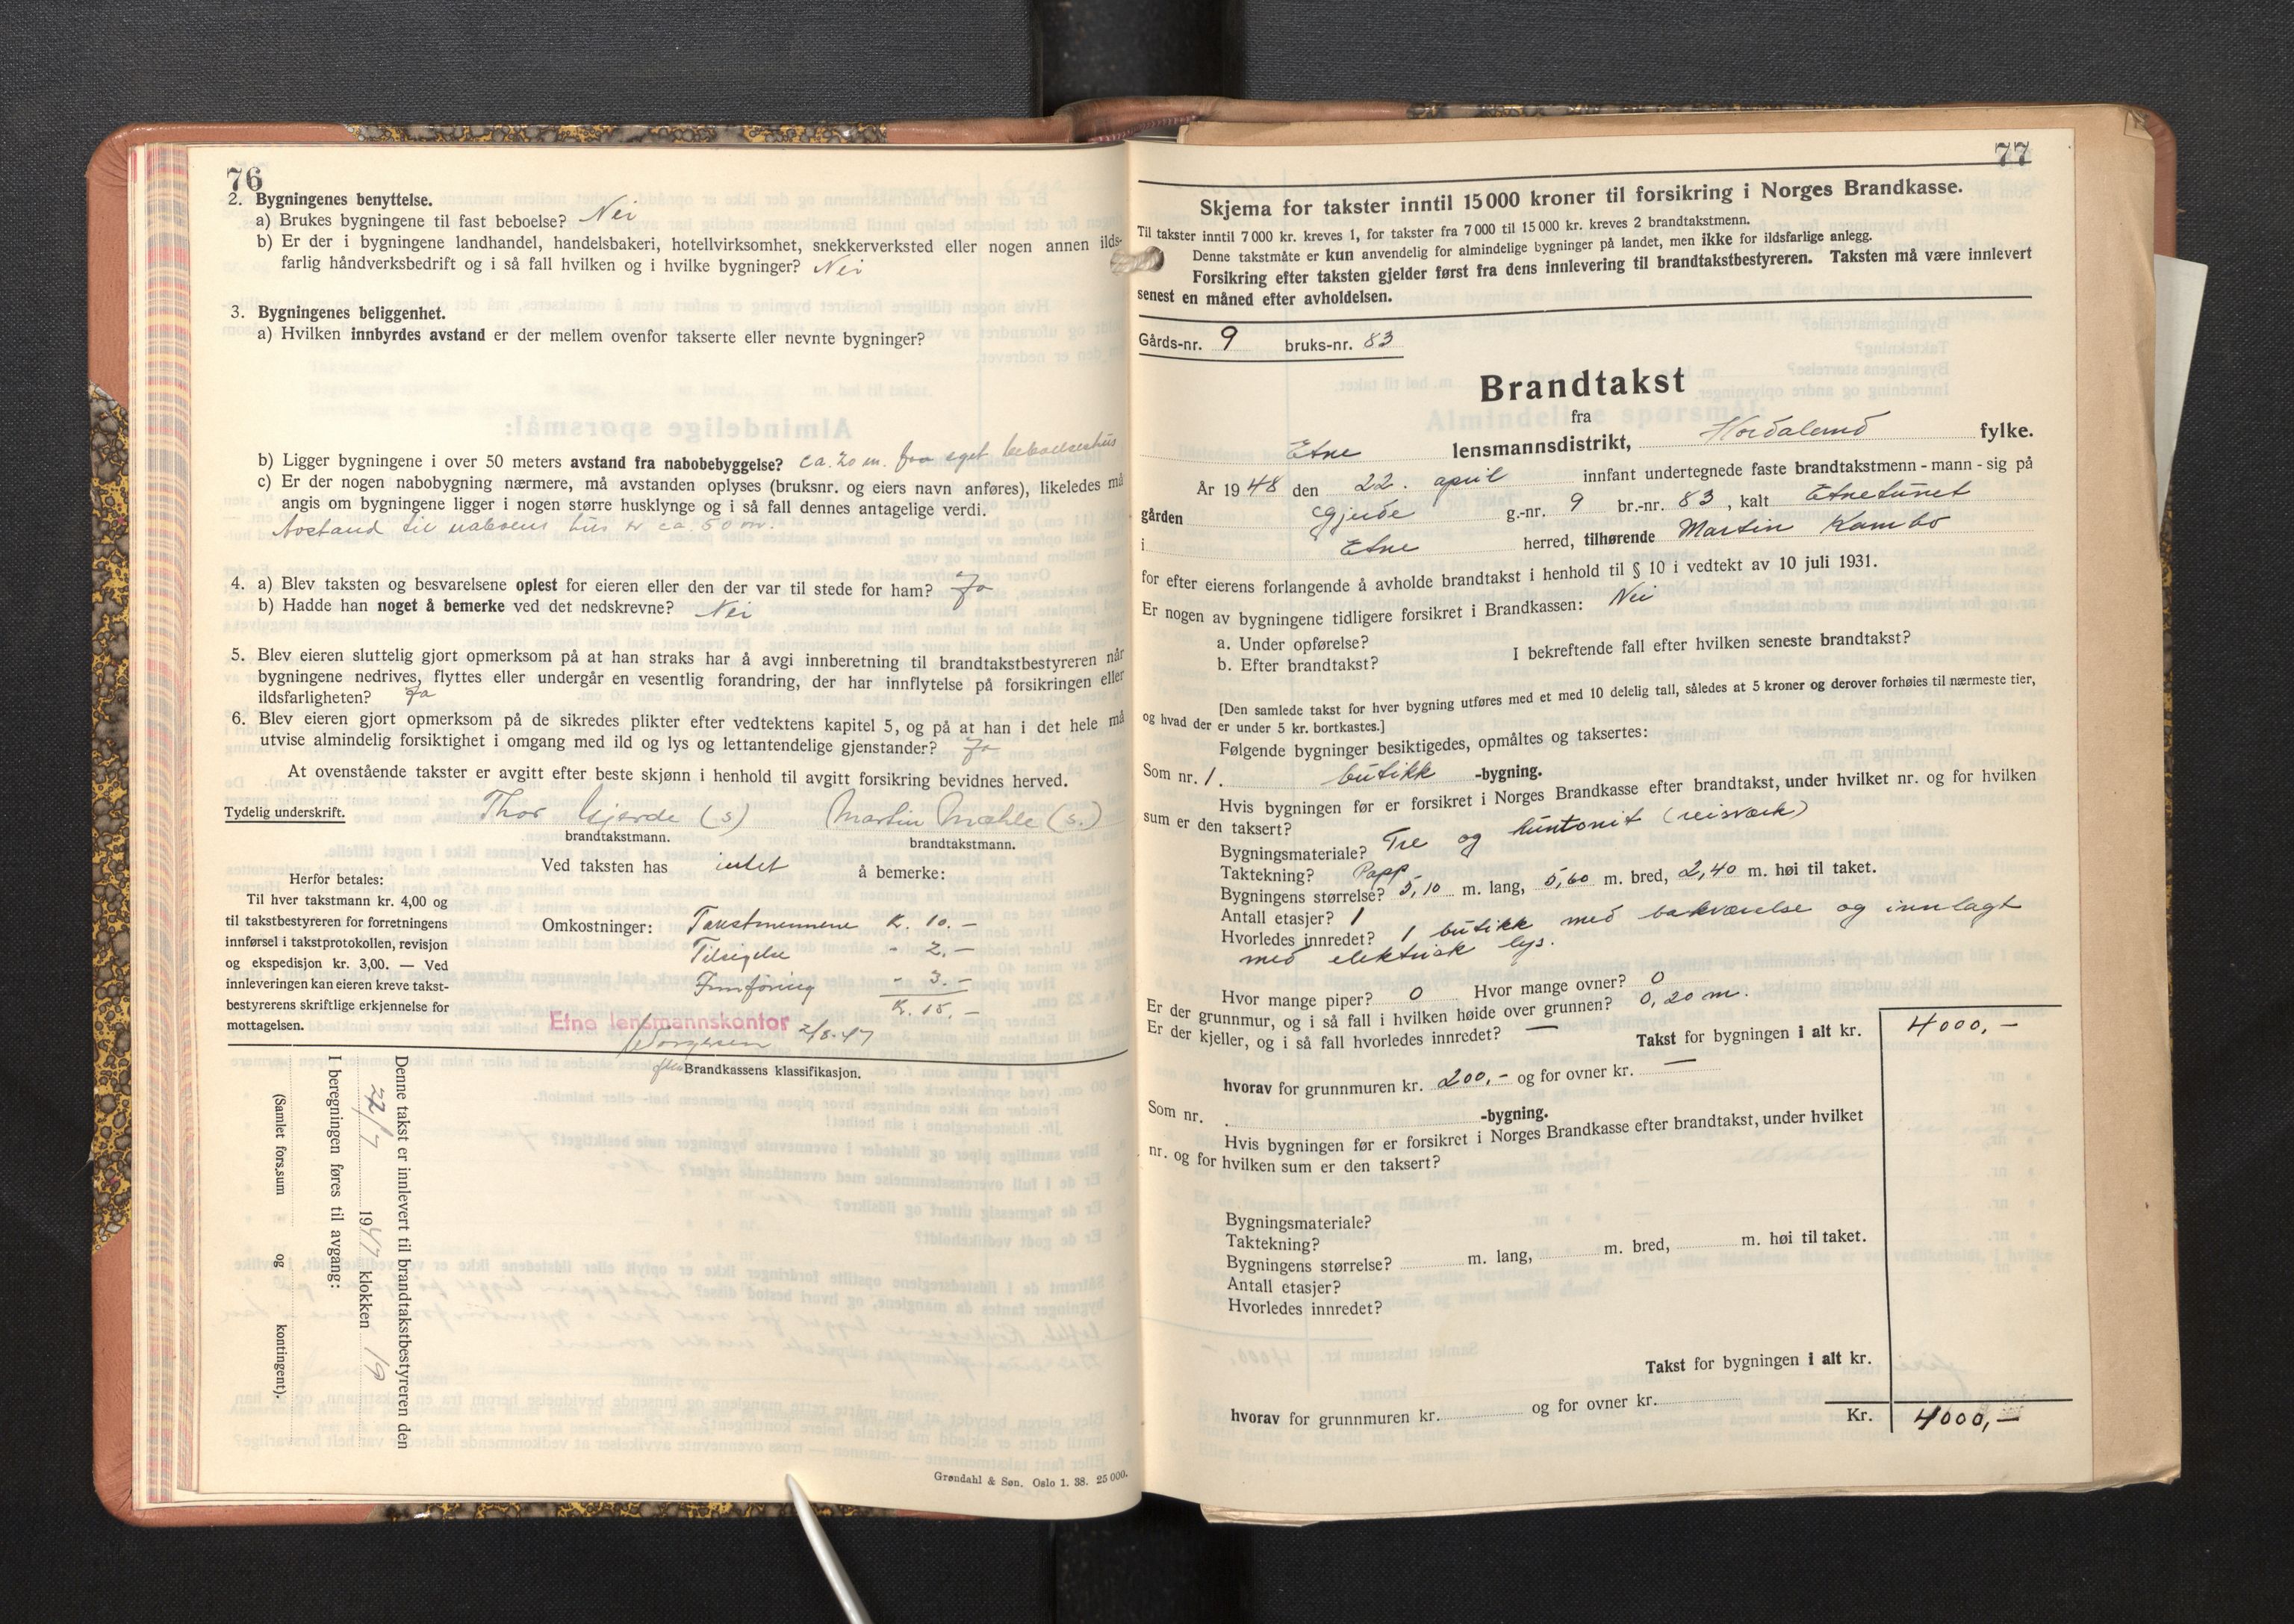 76
2. Bygningenes benyttelse.
a) Brukes bygningene til fast beboelse? Nei
b) Er der i bygningene landhandel, handelsbakeri, hotellvirksomhet, snekkerverksted eller nogen annen ilds-
farlig håndverksbedrift og i så fall hvilken og i hvilke bygninger? Nei
3. Bygningenes beliggenhet.
a) Hvilken innbyrdes avstand er der mellem ovenfor takserte eller nevnte bygninger?
b) Ligger bygningene i over 50 meters avstand fra nabobebyggelse? ca. 20 m. fra eget beboelseshus
c) Er der nogen nabobygning nærmere, må avstanden oplyses (bruksnr. og eiers navn anføres), likeledes må
angis om bygningene ligger i nogen større husklynge og i så fall dennes antagelige verdi.
Avstand til naboens hus er ca. 50 m.
4. a) Blev taksten og besvarelsene oplest for eieren eller den der var til stede for ham? Ja
b) Hadde han noget å bemerke ved det nedskrevne? Nei
5. Blev eieren sluttelig gjort opmerksom på at han straks har å avgi innberetning til brandtakstbestyreren når
bygningene nedrives, flyttes eller undergår en vesentlig forandring, der har innflytelse på forsikringen eller
ildsfarligheten? Ja
6. Blev eieren gjort opmerksom på de sikredes plikter efter vedtektens kapitel 5, og på at han i det hele må
utvise almindelig forsiktighet i omgang med ild og lys og lettantendelige gjenstander? Ja
At ovenstående takster er avgitt efter beste skjønn i henhold til avgitt forsikring bevidnes herved.
Tydelig underskrift. Thor Gjerde (s) Martin Mæhle (s.)
brandtakstmann. brandtakstmann.
Ved taksten has intet å bemerke:
Herfor betales:
Til hver takstmann kr. 4,00 og
til takstbestyreren for forretningens
innførsel i takstprotokollen, revisjon
og ekspedisjon kr. 3,00. — Ved
innleveringen kan eieren kreve takst-
bestyrerens skriftlige erkjennelse for
mottagelsen.
Omkostninger: Takstmennene K. 10.—
Tilsigelse - 2.—
Innføring - 3.—
K. 15.—
Etne lensmannskontor 2/8-47
Brandkassens klassifikasjon.
Denne takst er innlevert til brandtakstbestyreren den
22/7 1947 klokken 19
I beregningen føres til avgang:
(Samlet fors.sum og kontingent).
Grøndahl & Søn. Oslo 1. 38. 25 000.
77
Skjema for takster inntil 15 000 kroner til forsikring i Norges Brandkasse.
Til takster inntil 7 000 kr. kreves 1, for takster fra 7 000 til 15 000 kr. kreves 2 brandtakstmenn.
Denne takstmåte er kun anvendelig for almindelige bygninger på landet, men ikke for ildsfarlige anlegg.
Forsikring efter taksten gjelder først fra dens innlevering til brandtakstbestyreren. Taksten må være innlevert
senest en måned efter avholdelsen.
Gårds-nr. 9 bruks-nr. 83
Brandtakst
fra
Etne lensmannsdistrikt, Hordaland fylke.
År 1948 den 22. april innfant undertegnede faste brandtakstmenn - mann - sig på
gården Gjerde g.-nr. 9 br.-nr. 83, kalt Etnetunet
i Etne herred, tilhørende Martin Kambo
for efter eierens forlangende å avholde brandtakst i henhold til § 10 i vedtekt av 10 juli 1931.
Er nogen av bygningene tidligere forsikret i Brandkassen: Nei
a. Under opførelse?
b. Efter brandtakst? I bekreftende fall efter hvilken seneste brandtakst?
[Den samlede takst for hver bygning utføres med et med 10 delelig tall, således at 5 kroner og derover forhøies til nærmeste tier,
og hvad der er under 5 kr. bortkastes.]
Følgende bygninger besiktigedes, opmåltes og taksertes:
Som nr. 1. butikk -bygning.
Hvis bygningen før er forsikret i Norges Brandkasse efter brandtakst, under hvilket nr. og for hvilken
sum er den taksert?
Bygningsmateriale? Tre og huntonit (reisværk)
Taktekning? Papp
Bygningens størrelse? 5,10 m. lang, 5,60 m. bred, 2,40 m. høi til taket.
Antall etasjer? 1
Hvorledes innredet? 1 butikk med bakværelse og innlagt
med elektrisk lys.
Hvor mange piper? 0 Hvor mange ovner? 0
Er der grunnmur, og i så fall i hvilken høide over grunnen? 0,20 m.
Er der kjeller, og i så fall hvorledes innredet? —
Takst for bygningen i alt kr. 4000,—
hvorav for grunnmuren kr. 200,- og for ovner kr. —
Som nr. . -bygning.
Hvis bygningen før er forsikret i Norges Brandkasse efter brandtakst, under hvilket
nr. og for hvilken sum er den taksert?
Bygningsmateriale?
Taktekning?
Bygningens størrelse? m. lang, m. bred, m. høi til taket.
Antall etasjer?
Hvorledes innredet?
Takst for bygningen i alt kr.
hvorav for grunnmuren kr. og for ovner kr.
Kr. 4000,—